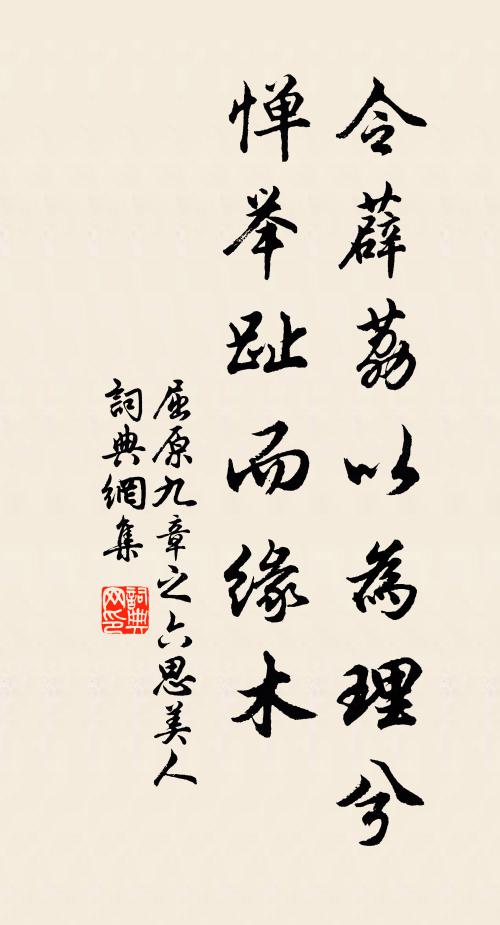 令薜荔以為理兮
憚举趾而緣木
屈原九章之六思美人
詞典網集
詞典
网印